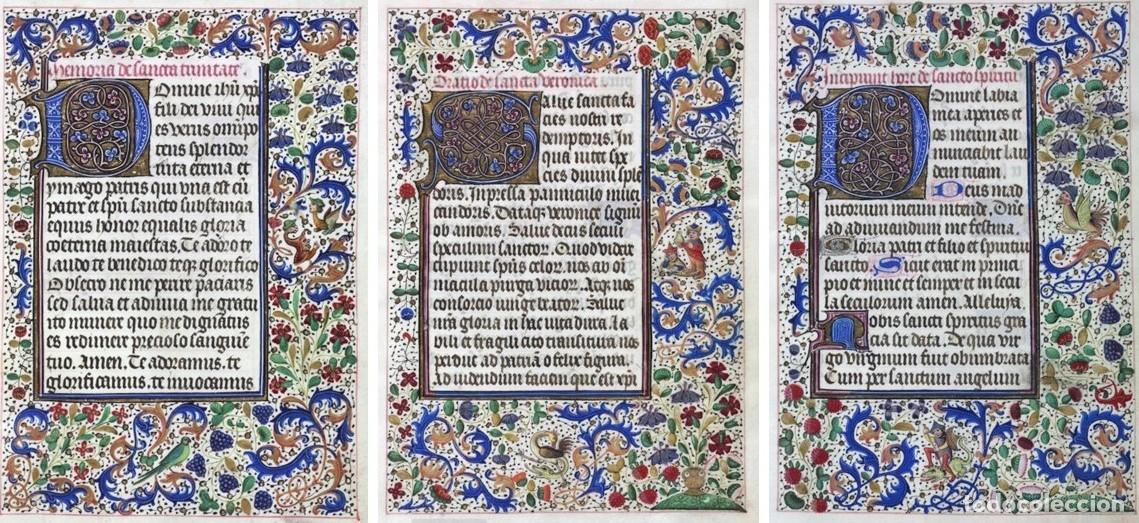 Memoria de sancta trinitate.
Domine ihu xp̄e
fili dei viui qui
es verus omnipo
tens splendor
tuita eterna et
ymago patris qui vna est cū
patre et spū sancto substancia
equus honor equalis gloria
coeterna maiestas. Te adoro te
laudo te benedico teq; glorifico
Obsecro ne me perire paciaris
sed salua et adiuua me gratu
ito munere quo me dignatus
es redimere precioso sanguine
tuo. Amen. Te adoramus. te
glorificamus. te inuocamus
Oratio de sancta veronica
Salue sancta fa
cies nostri re
demptoris. In
qua nitet spe
cies diuini sple
doris. Inpressa panniculo niuei
candoris. Dataq; veronice signū
ob amoris. Salue decus seculi
speculum sanctor. Quod videre
cupiunt spūs celor. nos ab oī
macula purga vicior. Atq; nos
consorcio iunge beator. Salue
nr̄a gloria in hac vita dura. la
bili et fragili cito transitura. nos
perduc ad patriā o felix figura.
Ad videndum faciem que est xp̄i
Incipiunt hore de sancto spiritu
Domine labia
mea aperies et
os meum an
nunciabit lau
dem tuam.
Deus in ad
iutorium meum intende. Dn̄e
ad adiuuandum me festina.
Gloria patri et filio et spiritui
sancto. Sicut erat in princi
pio et nunc et semper et in secu
la seculorum amen. Alleluya.
Nobis sancti spiritus gra
cia sit data. De qua vir
go virginum fuit obumbrata
Cum per sanctum angelum
todocoleccion